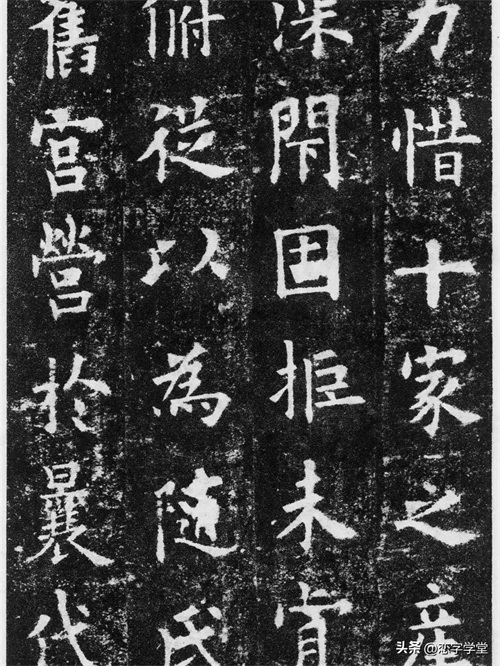 力惜十家之
深閇固拒未肯
俯從以為隨氏
舊宮營於曩代
头条 @恋字学堂